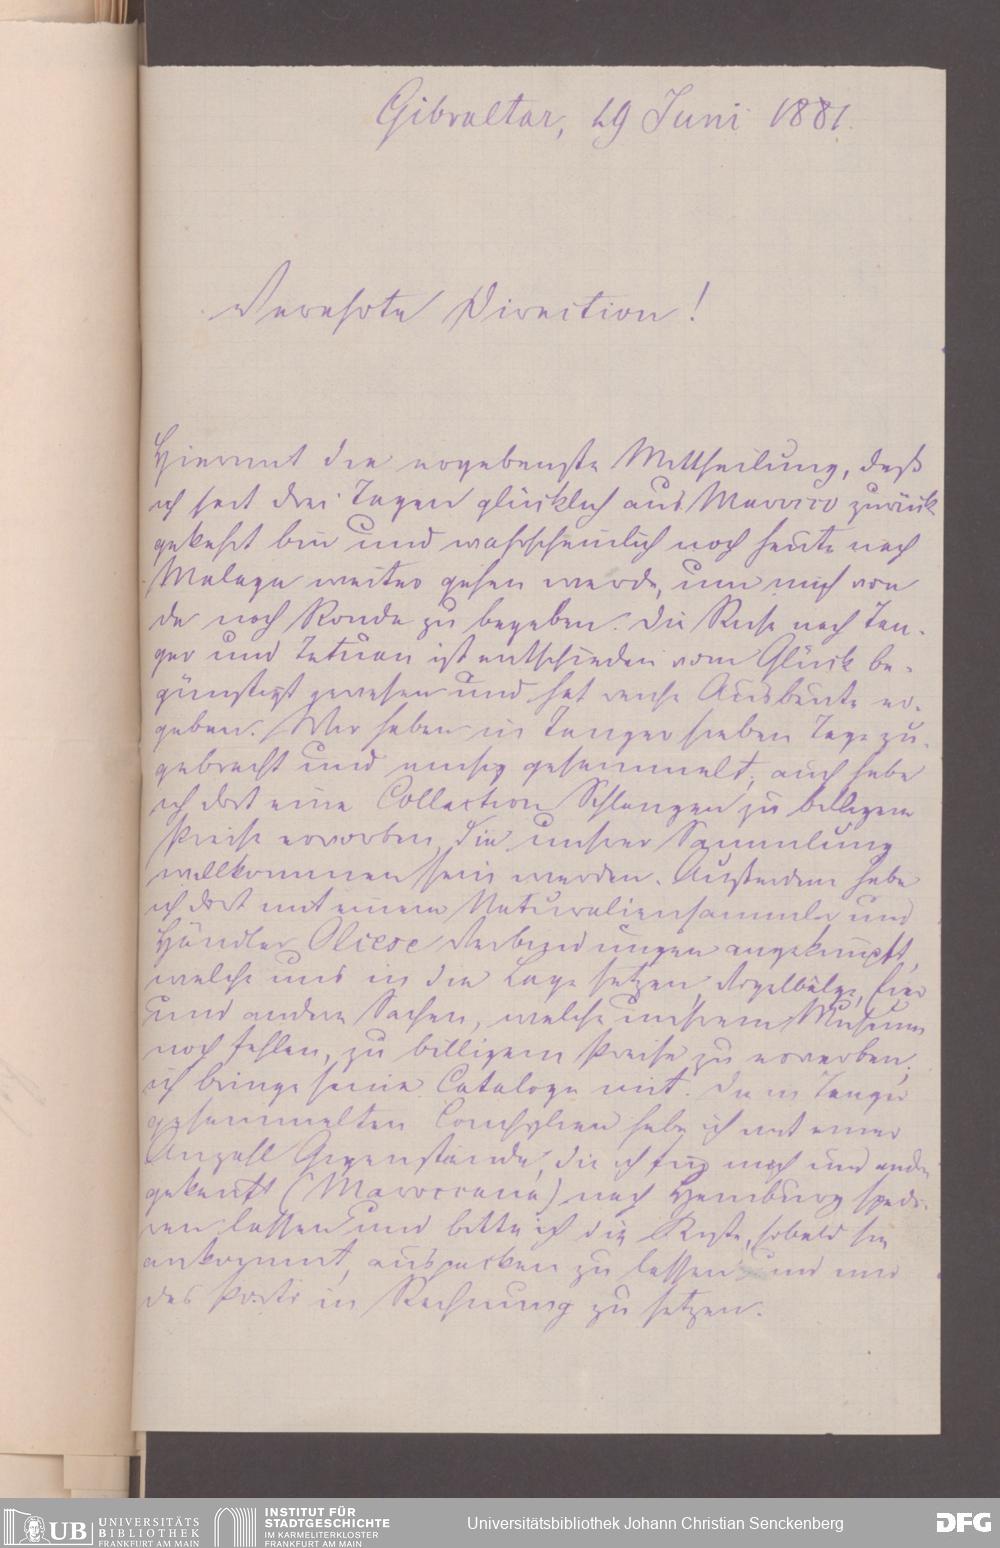 Gibraltar, 29 Juni 1881.
Verehrte Direction!
Hiermit die ergebenste Mittheilung, daß
ich seit drei Tagen glücklich aus Marocco zurück
gekehrt bin und wahrscheinlich noch heute nach
Malaga weiter gehen werde, um mich von
da nach Ronda zu begeben. Die Reise nach Tan-
ger und Tetuan ist entschieden vom Glück be-
günstigt gewesen und hat reiche Ausbeute er-
geben. Wir haben in Tanger sieben Tage zu-
gebracht und emsig gesammelt; auch habe
ich dort eine Collection Schlangen zu billigem
Preise erworben, die unserer Sammlung
willkommen sein werden. Ausserdem habe
ich dort mit einem Naturaliensammler und
Händler Olcese Verbindungen angeknüpft,
welche uns in die Lage setzen, Vogelbälge, Eier
und andere Sachen, welche unserem Museum
noch fehlen, zu billigem Preise zu erwerben;
ich bringe seine Cataloge mit. Die in Tanger
gesammelten Conchylien habe ich mit einer
Anzahl Gegenstände, die ich für mich und andere
gekauft (Maroccana) nach Hamburg spedi-
ren lassen und bitte ich die Kiste, sobald sie
ankommt, auspacken zu lassen und mir
das Porto in Rechnung zu setzen.
UB UNIVERSITÄTS
BIBLIOTHEK
FRANKFURT AM MAIN
INSTITUT FÜR
STADTGESCHICHTE
IM KARMELITERKLOSTER
FRANKFURT AM MAIN
Universitätsbibliothek Johann Christian Senckenberg
DFG